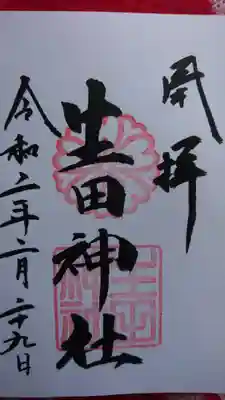 奉拝
生田神社
令和二年二月二十九日